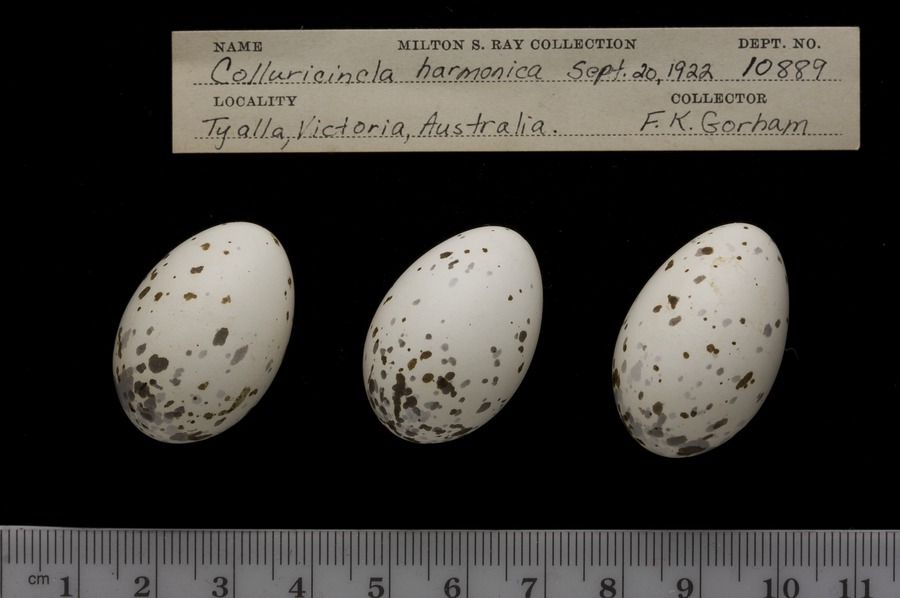 NAME MILTON S. RAY COLLECTION DEPT. NO.
Colluricincla harmonica Sept. 20, 1922 10889
LOCALITY COLLECTOR
Tyalla, Victoria, Australia. F. K. Gorham
cm 1 2 3 4 5 6 7 8 9 10 11